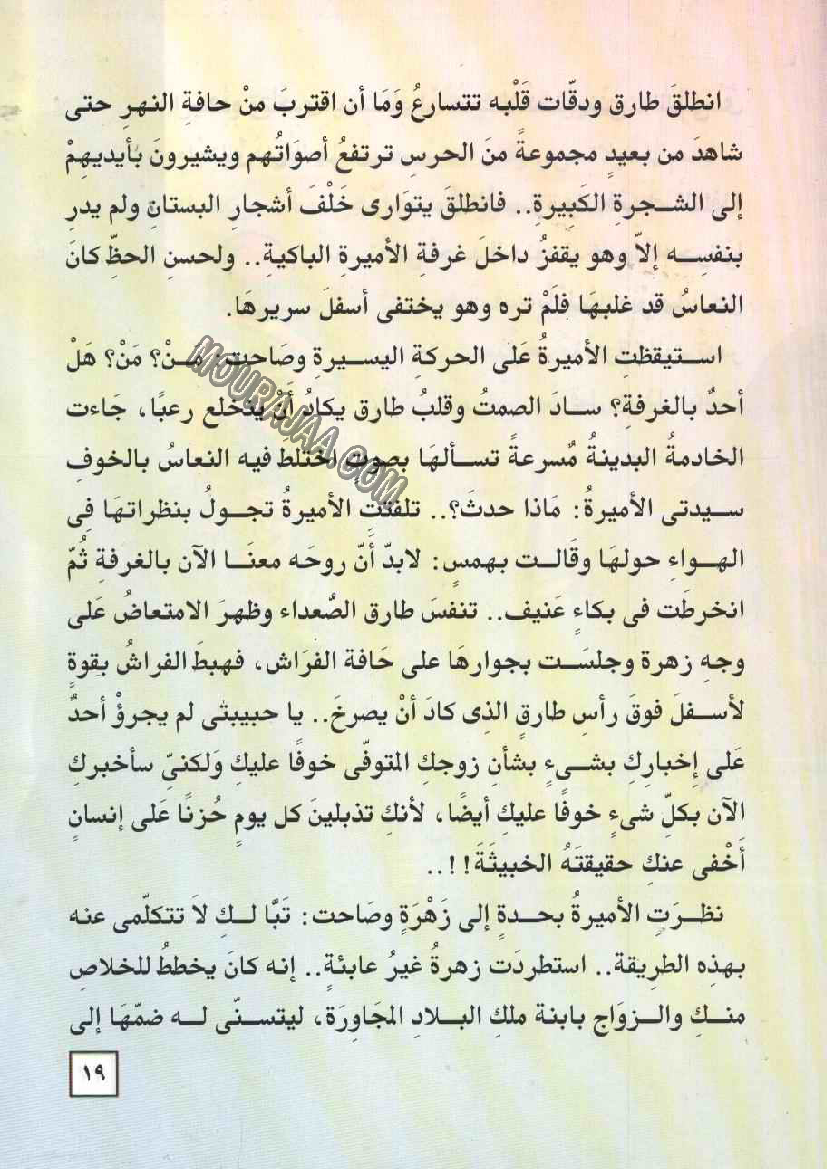 انطلقَ طارق ودقّات قَلْبه تتسارعُ وَمَا أن اقتربَ منْ حافةِ النهرِ حتى
شاهدَ من بعيدٍ مجموعةً منَ الحرسِ ترتفعُ أصوَاتُهم ويشيرونَ بأيديهِمْ
إلى الشـجرةِ الكَبِيرةِ.. فانطلقَ يتوَارى خَلْفَ أشجارِ البستانِ ولم يدرِ
بنفسِـه إلاّ وهو يقفزُ داخلَ غرفةِ الأميرةِ الباكيةِ.. ولحسنِ الحظِّ كانَ
النعاسُ قد غلبهَا فلَمْ تره وهو يختفى أسفلَ سريرهَا.
اسـتيقظتِ الأميرةُ عَلى الحركةِ اليسيرةِ وصَاحت: مَـنْ؟ مَنْ؟ هَلْ
أحدٌ بالغرفةِ؟ سـادَ الصمتُ وقلبُ طارق يكادُ أَنْ ينخلع رعبًا، جَاءت
الخادمةُ البدينةُ مٌسرعةً تسـألهَا بصوتٍ اختلط فيه النعاسُ بالخوفِ
سـيدتى الأميرةُ: مَاذا حدثَ؟.. تلفتتِ الأميرةُ تجـولُ بنظراتهَا فِى
الهـواءِ حولهَا وقَالـت بهمسٍ: لابدّ أَنّ روحَه معنَـا الآن بالغرفةِ ثُمّ
انخرطَت فى بكاءٍ عَنيف.. تنفسَ طارق الصُعداء وظهرَ الامتعاضُ عَلى
وجهِ زهرة وجلسَـت بجوارهَا على حَافة الفرَاش، فهبطَ الفراشُ بقوةٍ
لأسـفلَ فوقَ رأسِ طارقٍ الذِى كادَ أنْ يصرخَ.. يا حبيبتى لم يجرؤْ أحدٌ
عَلى إِخبارِكِ بشـىءٍ بشأنِ زوجكِ المتوفّى خوفًا عليكِ وَلكنىّ سأخبركِ
الآن بكلِّ شىءٍ خوفًا عليكِ أيضًا، لأنكِ تذبلينَ كل يومٍ حُزنًا عَلى إنسانٍ
أَخْفى عنكِ حقيقتَهُ الخبيثَةَ!!..
نظـرَتِ الأميرةُ بحدةٍ إلى زَهْرَةٍ وصَاحت: تَبًّا لـكِ لاَ تتكلّمى عنه
بهذِه الطريقة.. استطردَت زهرةُ غيرُ عابئةٍ.. إنه كانَ يخططُ للخلاصِ
منـكِ والـزوَاج بابنة ملكِ البـلادِ المجَاورَة، ليتسنّى لـه ضمّهَا إلى
١٩
MOURAJAA.COM